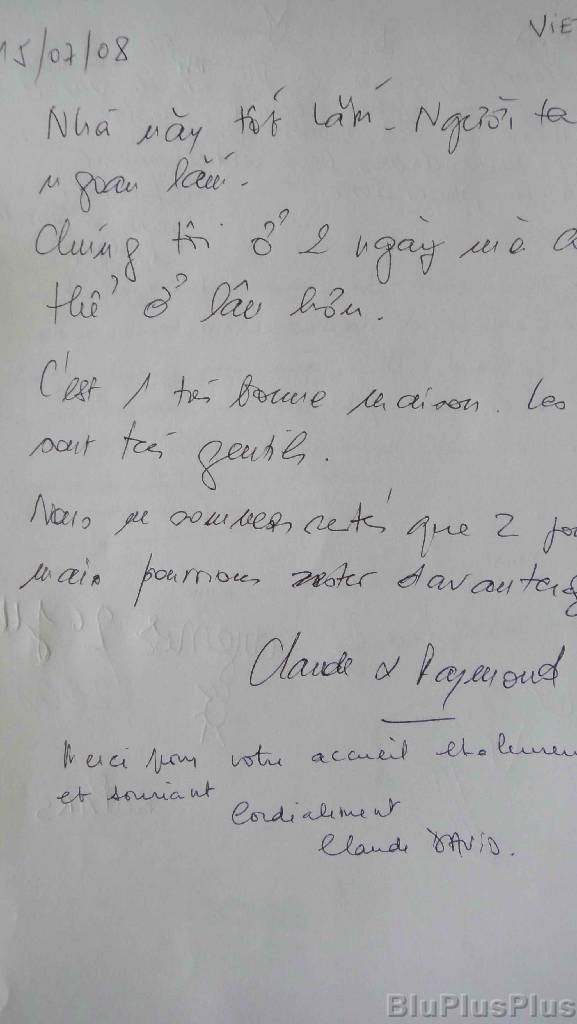 VIE
15/07/08
Nhà này tốt lắm. Người ta
ngoan lắm.
Chúng tôi ở 2 ngày mà
thể ở lâu hơn.
C'est 1 très bonne maison. Les
sont très gentils.
Nous ne sommes restés que 2 jo
mais pourrions rester davantag
Claude & Raymond
Merci pour votre accueil
et souriant
Cordialement
Claude DAVID.
BluPlusPlus